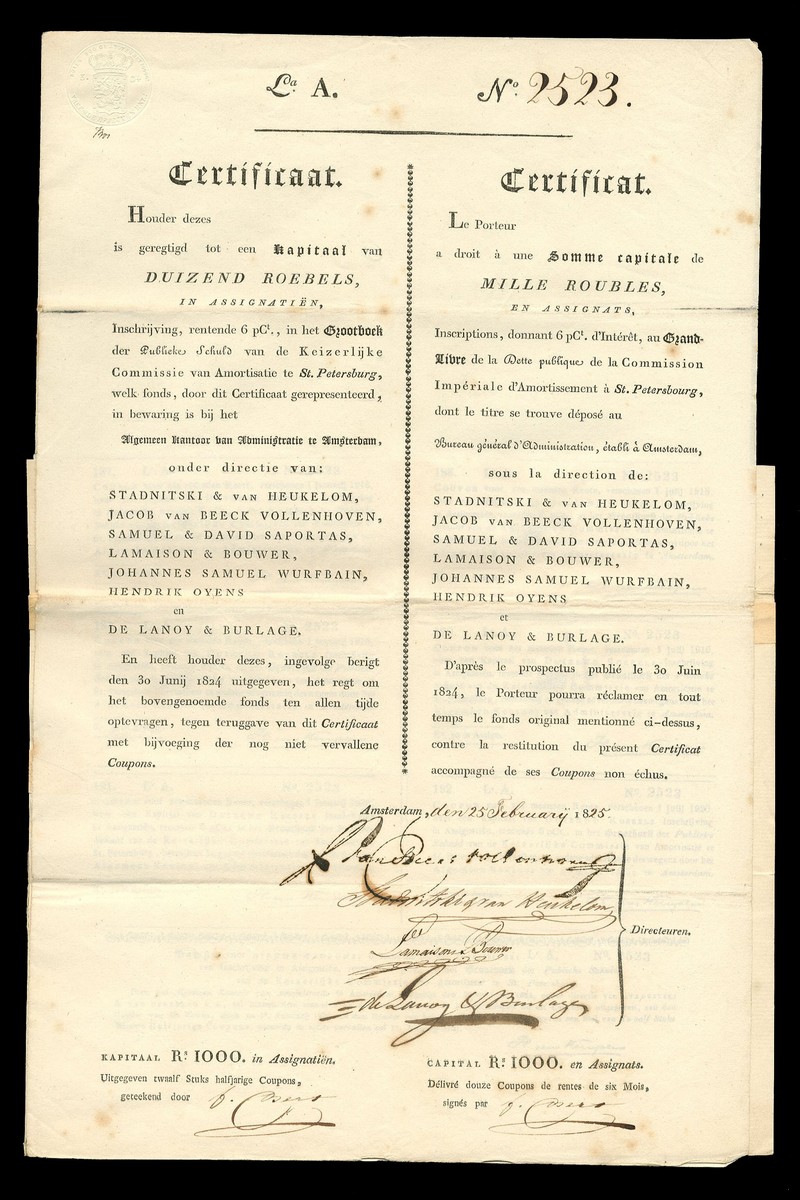 Lᵃ A.
Nº 2523.
Certificaat.
Houder dezes
is geregtigd tot een Kapitaal van
DUIZEND ROEBELS,
IN ASSIGNATIËN,
Inschrijving, rentende 6 pCᵗ., in het Grootboek
der Publieke Schuld van de Keizerlijke
Commissie van Amortisatie te St. Petersburg,
welk fonds, door dit Certificaat gerepresenteerd,
in bewaring is bij het
Algemeen Kantoor van Administratie te Amsterdam,
onder directie van:
STADNITSKI & VAN HEUKELOM,
JACOB VAN BEECK VOLLENHOVEN,
SAMUEL & DAVID SAPORTAS,
LAMAISON & BOUWER,
JOHANNES SAMUEL WURFBAIN,
HENDRIK OYENS
en
DE LANOY & BURLAGE.
En heeft houder dezes, ingevolge berigt
den 30 Junij 1824 uitgegeven, het regt om
het bovengenoemde fonds ten allen tijde
optevragen, tegen teruggave van dit Certificaat
met bijvoeging der nog niet vervallene
Coupons.
Certificat.
Le Porteur
a droit à une Somme capitale de
MILLE ROUBLES,
EN ASSIGNATS,
Inscriptions, donnant 6 pCᵗ. d'Intérêt, au Grand-
Livre de la Dette publique de la Commission
Impériale d'Amortissement à St. Petersbourg,
dont le titre se trouve déposé au
Bureau général d'Administration, établi à Amsterdam,
sous la direction de:
STADNITSKI & VAN HEUKELOM,
JACOB VAN BEECK VOLLENHOVEN,
SAMUEL & DAVID SAPORTAS,
LAMAISON & BOUWER,
JOHANNES SAMUEL WURFBAIN,
HENDRIK OYENS
et
DE LANOY & BURLAGE.
D'après le prospectus publié le 30 Juin
1824, le Porteur pourra réclamer en tout
temps le fonds original mentionné ci-dessus,
contre la restitution du présent Certificat
accompagné de ses Coupons non échus.
Amsterdam, den 25 February 1825.
van Beeck Vollenhoven
Stadnitski & van Heukelom
Lamaison & Bouwer
de Lanoy & Burlage
Directeuren.
KAPITAAL Rˢ 1000. in Assignatiën.
Uitgegeven twaalf Stuks halfjarige Coupons,
geteekend door
CAPITAL Rˢ 1000. en Assignats.
Délivré douze Coupons de rentes de six Mois,
signés par